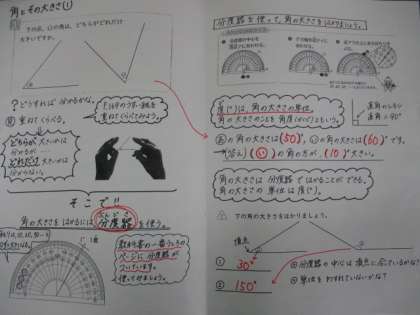 角とその大きさ①
下の㋐、㋑の角は、どちらがどれだけ
大きいですか。
？どうすれば分かるかな。
重ねてくらべる。
どちらが大きいかは
分かるが…
どれだけ大きいかは
分からない。
重ねてくらべてみよう。
そこで
角の大きさをはかるには分度器を使う。
ぶんどき
教科書の一番うしろの
ページに分度器が
ついています。
使ってみましょう。
分度器を使って、角の大きさをはかりましょう。
度(°)は、角の大きさの単位。
角の大きさのことを角度(かくど)ともいう。
直角のしるし
直角=90°
㋐の角の大きさは(50)°、㋑の角の大きさは(60)°です。
答え(㋑)の角の方が、(10)°大きい。
角の大きさは分度器ではかることができる。
角の大きさの単位は度(°)。
下の角の大きさをはかりましょう。
頂点
① 30°
② 150°
分度器の中心は頂点に合っているかな？
単位をわすれていないかな？